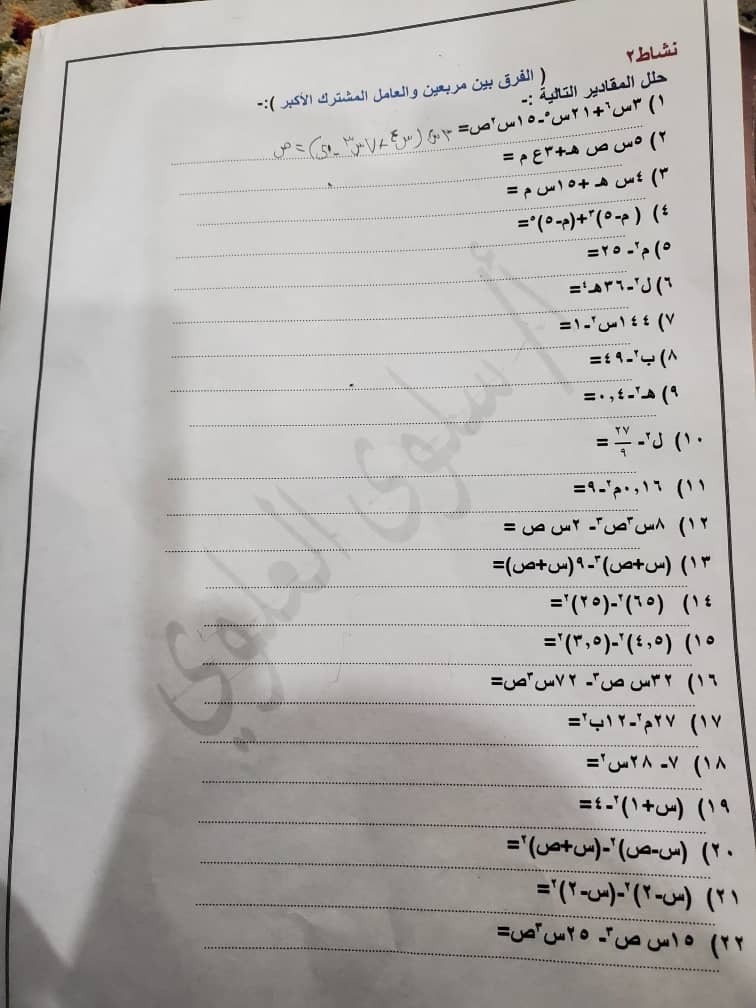 نشاط٢
حلل المقادير التالية :- ( الفرق بين مربعين والعامل المشترك الأكبر ):-
١) ٣س٦+٢١س٥-١٥س٢ص=
٢) ٥س ص هـ+٣ع م =
٣) ٤س هـ +١٥س م =
٤) ( م-٥)٣+(م-٥)٥=
٥) م٢- ٢٥=
٦) ل٢-٣٦هـ٤=
٧) ١٤٤س٢-١=
٨) ب٢-٤٩=
٩) هـ٢-٠,٤=
١٠) ل٢- ٢٧/٩ =
١١) ٠,١٦م٢-٩=
١٢) ٨س٣ص٣- ٢س ص =
١٣) (س+ص)٣-٩(س+ص)=
١٤) (٦٥)٢-(٢٥)٢=
١٥) (٤,٥)٢-(٣,٥)٢=
١٦) ٣٢س ص٣- ٧٢س٣ص=
١٧) ٢٧م٢-١٢ب٢=
١٨) ٧- ٢٨س٢=
١٩) (س+١)٢-٤=
٢٠) (س-ص)٢-(س+ص)٢=
٢١) (س-٢)٢-(س-٢)٢=
٢٢) ١٥س ص٣- ٢٥س٣ص=
أ. سلوى العلوي